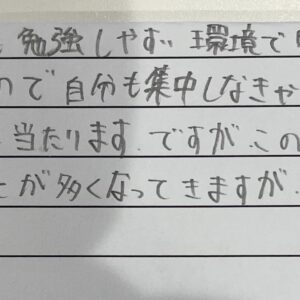 勉強しやすい環境で
ので自分も集中しなきゃ
当たります。ですがこの
が多くなってきますが